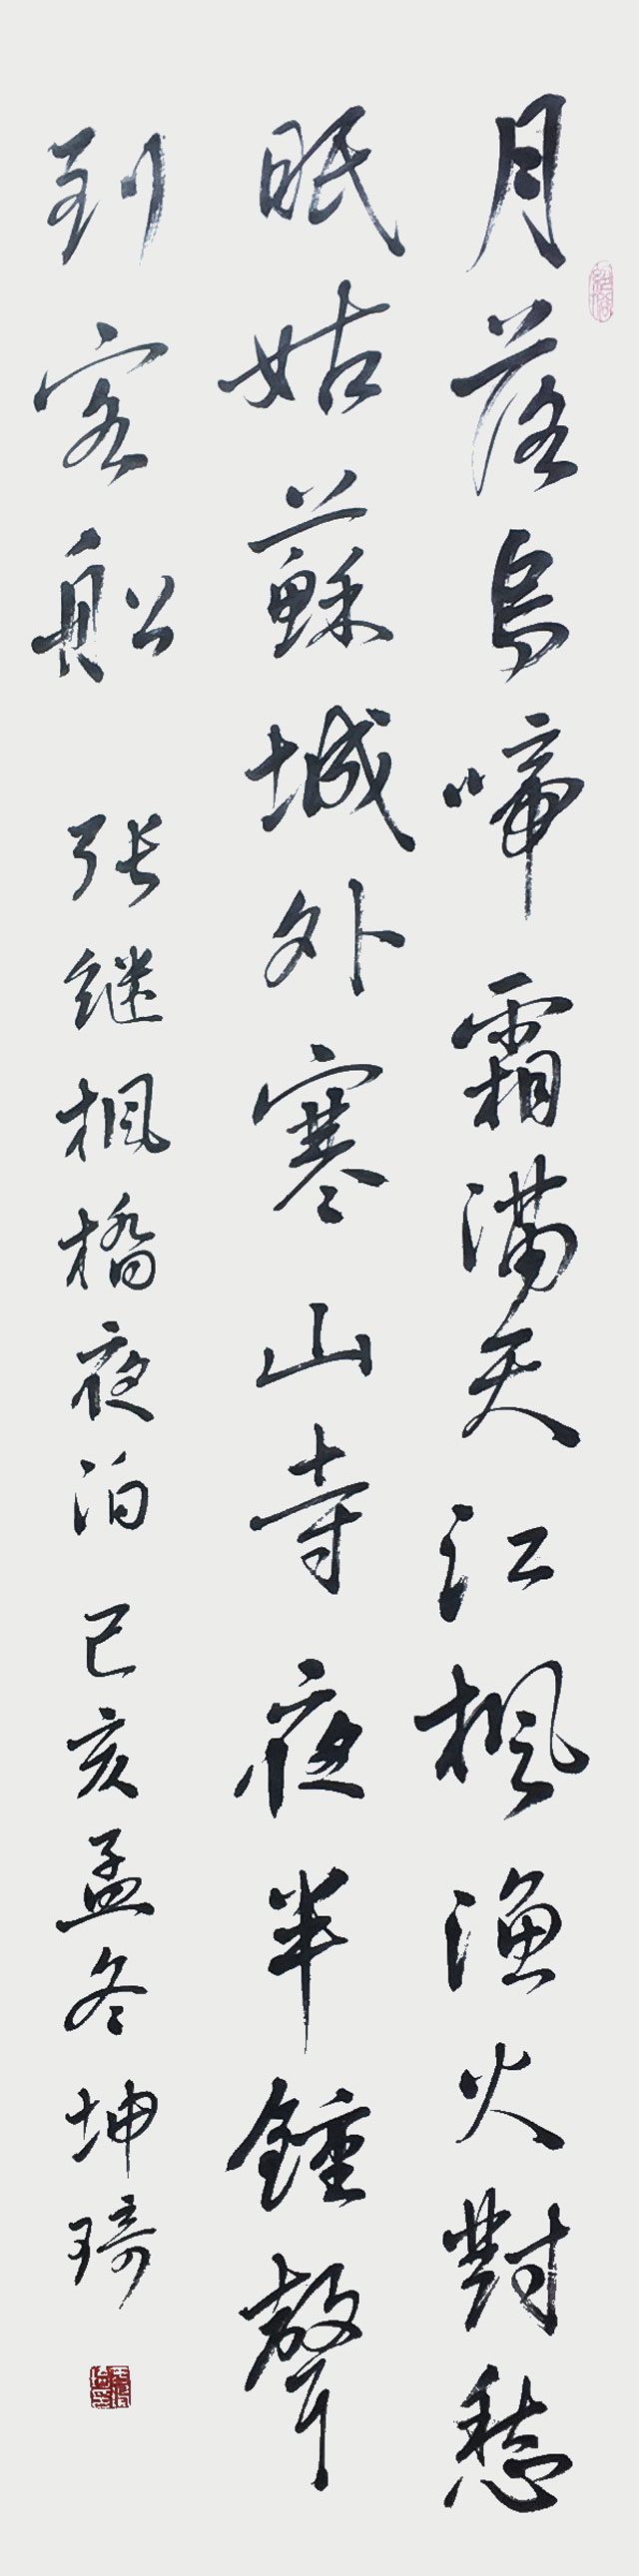 月落烏啼霜满天江楓渔火對愁
眠姑蘇城外寒山寺夜半鍾聲
到客船 张继楓橋夜泊 己亥孟冬坤琦